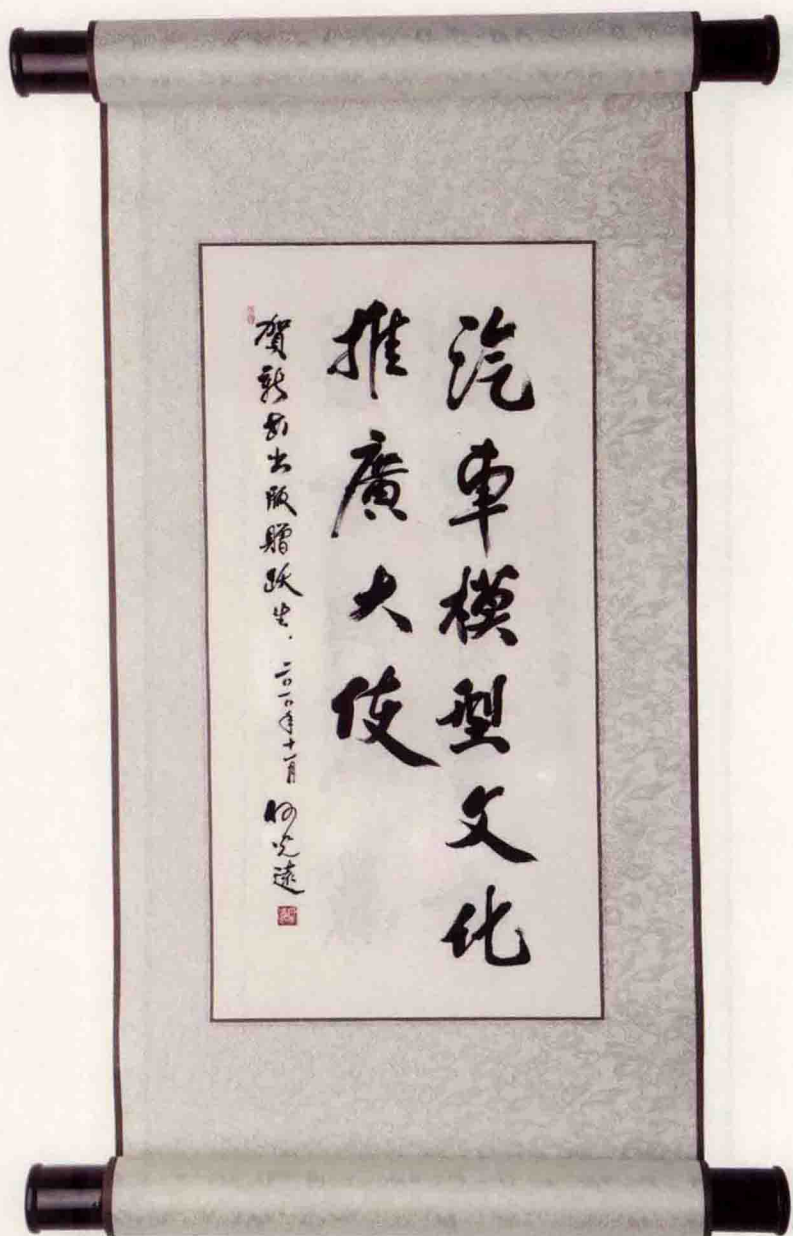 汽車模型文化
推廣大使
贺新书出版赠跃生．二〇一〇年十一月 何光遠